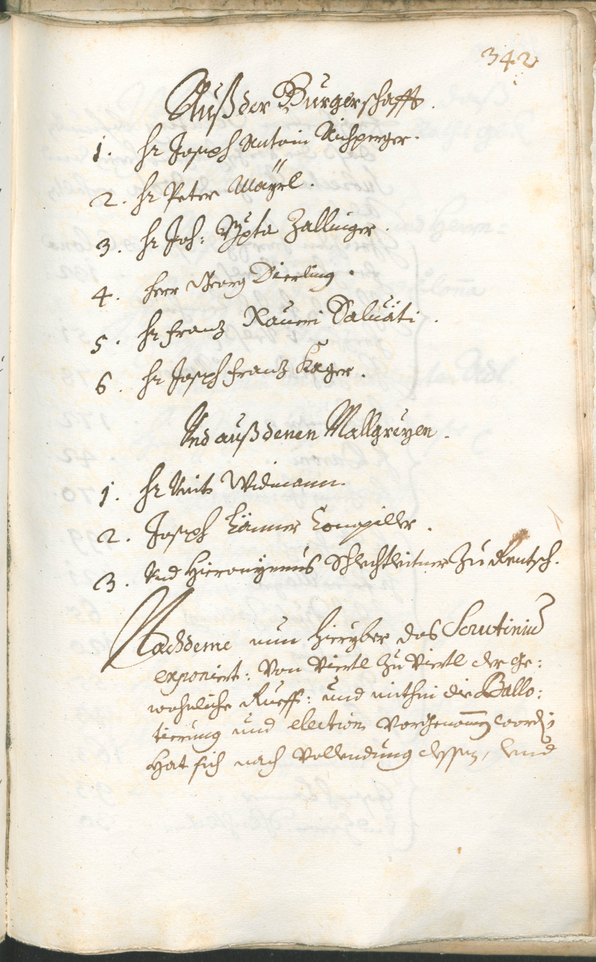 342
Auß der Burgerschafft.
1. Hr Joseph Antoni Aichperger.
2. Hr Peter Mayrl.
3. Hr Joh: Bapta Zallinger.
4. Herr Georg Dierling.
5. Hr Franz Xaueri Saluati.
6. Hr Joseph Franz Kager.
Und auß denen Mallgreyen.
1. Hr Veit Widmann.
2. Joseph
3. Und Hieronymus Schlechtleitner zu Rentsch.
Nachdeme nun hieryber das Scrutinium
exponiert: von Viertl zu Viertl der ge:
wohnliche Rueff: und mithin die Ballo:
tierung und election vorgenommen worden
hat sich nach Vollendung dessen, und